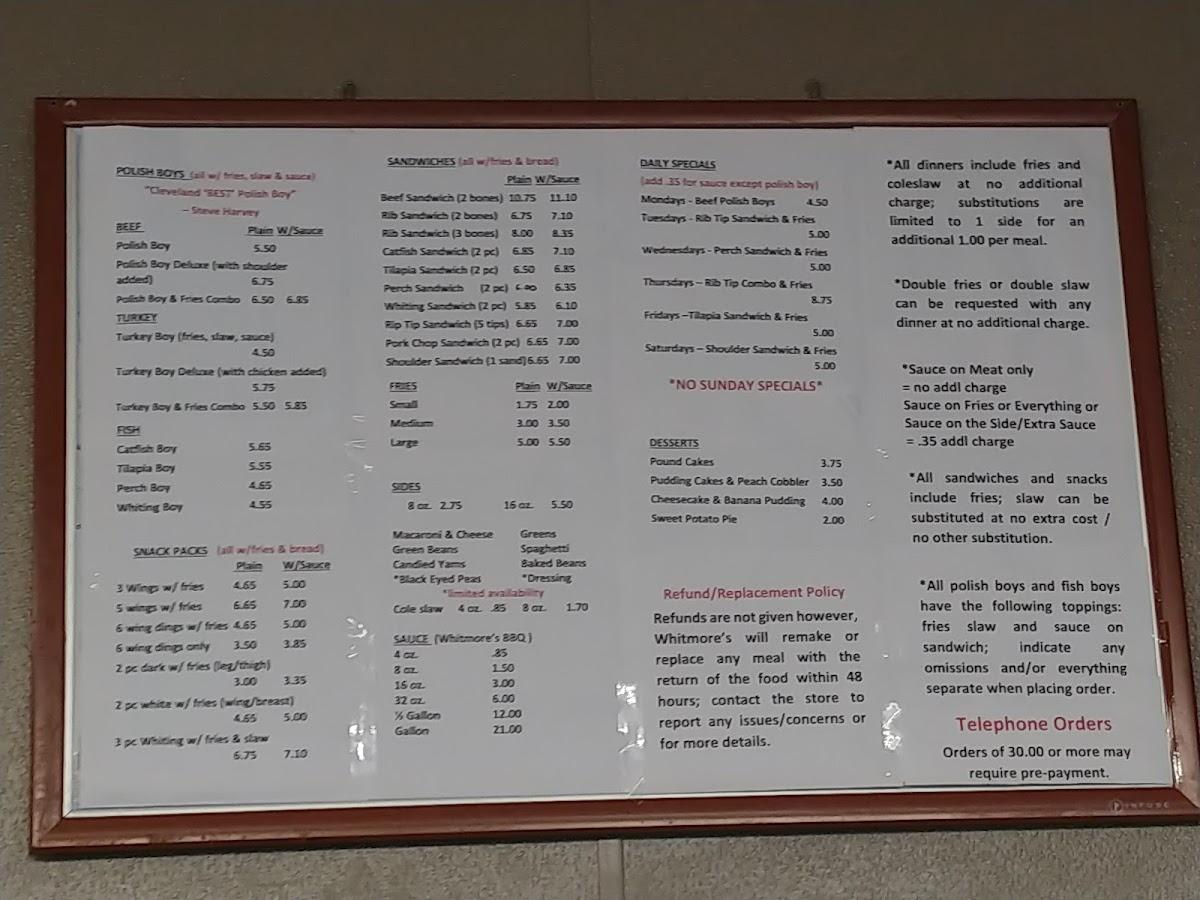 POLISH BOYS (all w/ fries, slaw & sauce)
"Cleveland "BEST" Polish Boy"
– Steve Harvey
BEEF Plain W/Sauce
Polish Boy 5.50
Polish Boy Deluxe (with shoulder
added) 6.75
Polish Boy & Fries Combo 6.50 6.85
TURKEY
Turkey Boy (fries, slaw, sauce)
4.50
Turkey Boy Deluxe (with chicken added)
5.75
Turkey Boy & Fries Combo 5.50 5.85
FISH
Catfish Boy 5.65
Tilapia Boy 5.55
Perch Boy 4.65
Whiting Boy 4.55
SNACK PACKS (all w/fries & bread)
Plain W/Sauce
3 Wings w/ fries 4.65 5.00
5 wings w/ fries 6.65 7.00
6 wing dings w/ fries 4.65 5.00
6 wing dings only 3.50 3.85
2 pc dark w/ fries (leg/thigh)
3.00 3.35
2 pc white w/ fries (wing/breast)
4.65 5.00
3 pc Whiting w/ fries & slaw
6.75 7.10
SANDWICHES (all w/fries & bread)
Plain W/Sauce
Beef Sandwich (2 bones) 10.75 11.10
Rib Sandwich (2 bones) 6.75 7.10
Rib Sandwich (3 bones) 8.00 8.35
Catfish Sandwich (2 pc) 6.85 7.10
Tilapia Sandwich (2 pc) 6.50 6.85
Perch Sandwich (2 pc) 6.35
Whiting Sandwich (2 pc) 5.85 6.10
Rip Tip Sandwich (5 tips) 6.65 7.00
Pork Chop Sandwich (2 pc) 6.65 7.00
Shoulder Sandwich (1 sand) 6.65 7.00
FRIES Plain W/Sauce
Small 1.75 2.00
Medium 3.00 3.50
Large 5.00 5.50
SIDES
8 oz. 2.75 16 oz. 5.50
Macaroni & Cheese Greens
Green Beans Spaghetti
Candied Yams Baked Beans
*Black Eyed Peas *Dressing
*limited availability
Cole slaw 4 oz. .85 8 oz. 1.70
SAUCE (Whitmore's BBQ)
4 oz. .85
8 oz. 1.50
16 oz. 3.00
32 oz. 6.00
½ Gallon 12.00
Gallon 21.00
DAILY SPECIALS
(add .35 for sauce except polish boy)
Mondays - Beef Polish Boys 4.50
Tuesdays - Rib Tip Sandwich & Fries
5.00
Wednesdays - Perch Sandwich & Fries
5.00
Thursdays – Rib Tip Combo & Fries
8.75
Fridays –Tilapia Sandwich & Fries
5.00
Saturdays – Shoulder Sandwich & Fries
5.00
*NO SUNDAY SPECIALS*
DESSERTS
Pound Cakes 3.75
Pudding Cakes & Peach Cobbler 3.50
Cheesecake & Banana Pudding 4.00
Sweet Potato Pie 2.00
Refund/Replacement Policy
Refunds are not given however,
Whitmore's will remake or
replace any meal with the
return of the food within 48
hours; contact the store to
report any issues/concerns or
for more details.
*All dinners include fries and
coleslaw at no additional
charge; substitutions are
limited to 1 side for an
additional 1.00 per meal.
*Double fries or double slaw
can be requested with any
dinner at no additional charge.
*Sauce on Meat only
= no addl charge
Sauce on Fries or Everything or
Sauce on the Side/Extra Sauce
= .35 addl charge
*All sandwiches and snacks
include fries; slaw can be
substituted at no extra cost /
no other substitution.
*All polish boys and fish boys
have the following toppings:
fries slaw and sauce on
sandwich; indicate any
omissions and/or everything
separate when placing order.
Telephone Orders
Orders of 30.00 or more may
require pre-payment.